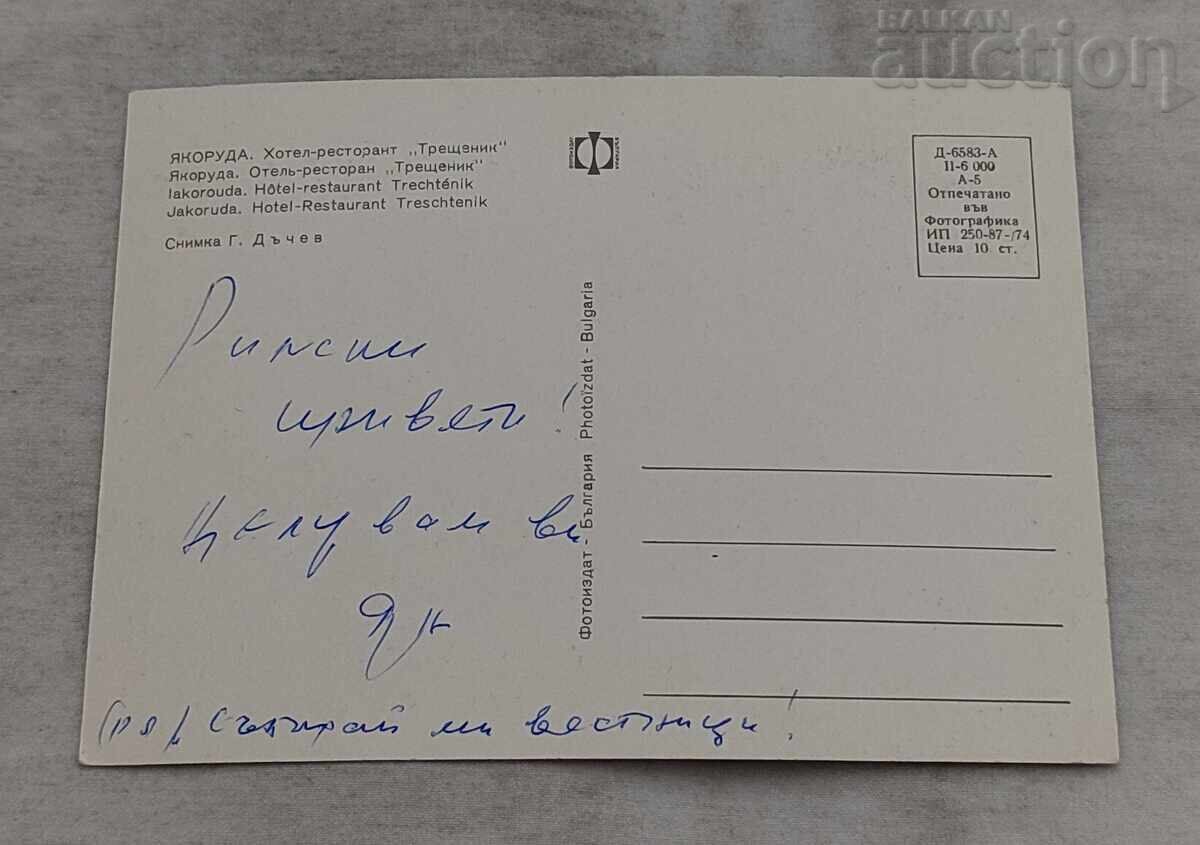 BALKAN
auction
ЯКОРУДА. Хотел-ресторант „Трещеник"
Якоруда. Отель-ресторан „Трещеник"
Iakorouda. Hôtel-restaurant Trechténik
Jakoruda. Hotel-Restaurant Treschtenik
Снимка Г. Дъчев
Д-6583-А
II-6 000
А-5
Отпечатано
във
Фотографика
ИП 250-87-/74
Цена 10 ст.
Фотоиздат - България Photoïzdat - Bulgaria
Рилски
привети!
Целувам ви
Събирай ми вестници!